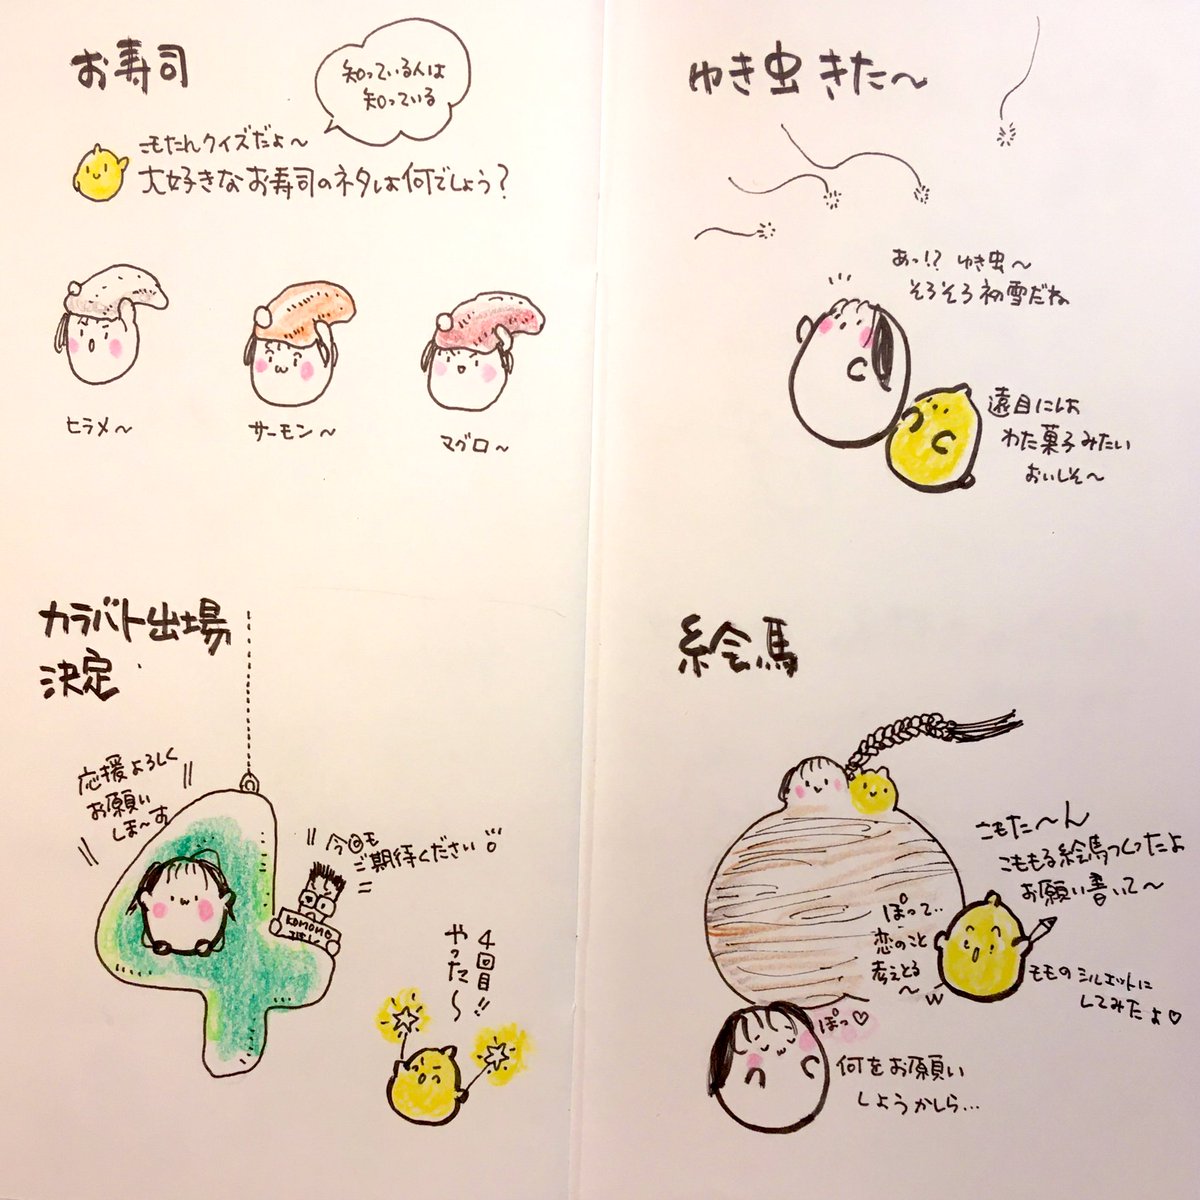 お寿司
知っている人は
知っている
こもたんクイズだよ〜
大好きなお寿司のネタは何でしょう?
ヒラメ〜
サーモン〜
マグロ〜
ゆき虫きた〜
あっ!? ゆき虫〜
そろそろ初雪だね
遠目には
わた菓子みたい
おいしそ〜
カラバト出場
決定
応援よろしく
お願い
しま〜す
今回も
ご期待ください!!
KOMOMO
4回目!!
やった〜
絵馬
こもた〜ん
こももる絵馬つくったよ
お願い書いて〜
ぽって..
恋のこと
考えとる
〜
w
モモのシルエットに
してみたよ♡
ぽっ♡
何をお願い
しようかしら...